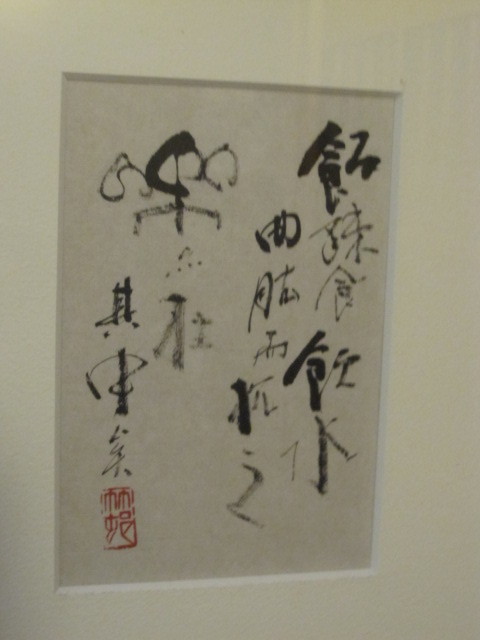 飯疎食飲水
曲肱而枕之
樂亦在
其中矣